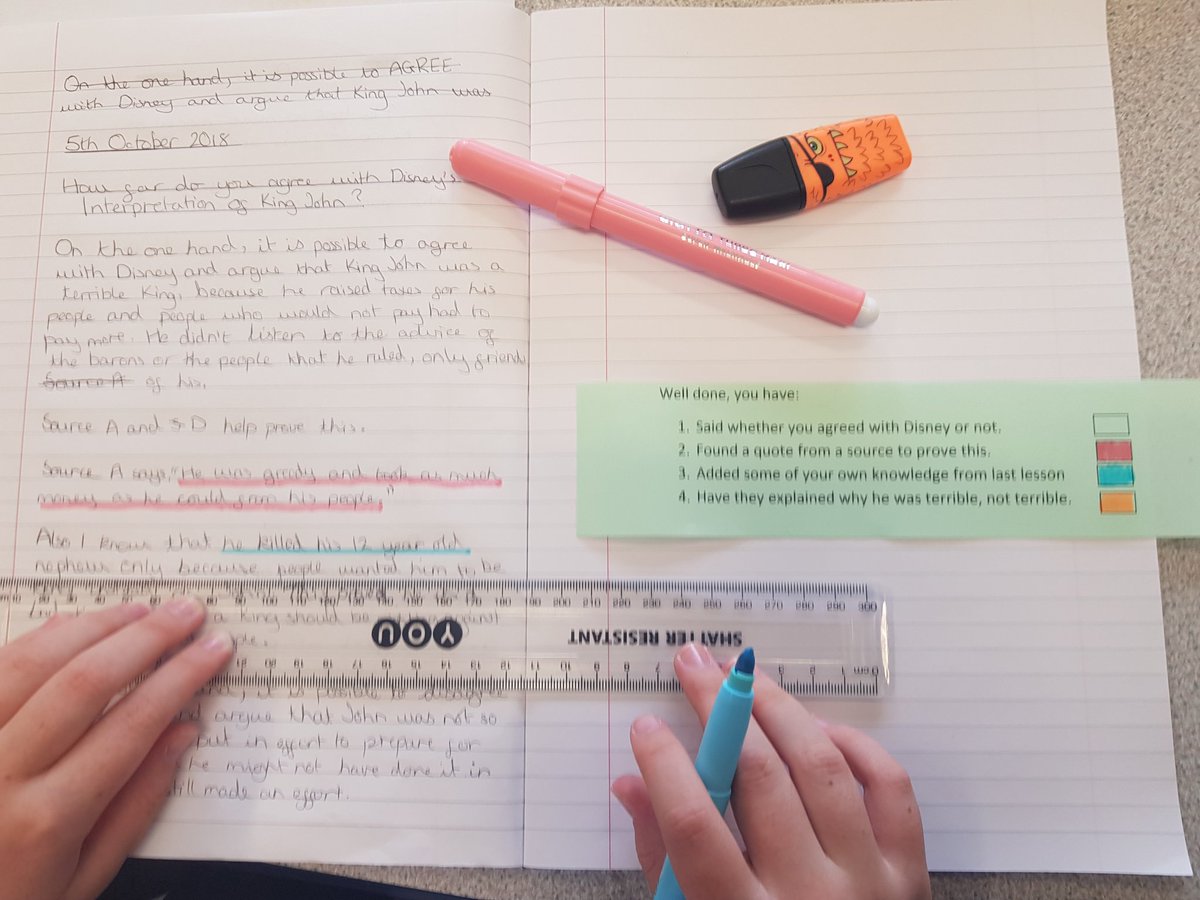 On the one hand, it is possible to AGREE
with Disney and argue that King John was
5th October 2018
How far do you agree with Disney's
Interpretation of King John?
On the one hand, it is possible to agree
with Disney and argue that King John was a
terrible King, because he raised taxes for his
people and people who would not pay had to
pay more. He didn't listen to the advice of
the barons or the people that he ruled, only friend
Source A of his.
Source A and D help prove this.
Source A says, "He was greedy and took as much
money as he could from his people"
Also I know that he killed his 12 year old
nephew only because people wanted him to be
a King should be
it is possible to disagree
and argue that John was not so
but in effort to prepare for
he might not have done it in
still made an effort.
Well done, you have:
1. Said whether you agreed with Disney or not.
2. Found a quote from a source to prove this.
3. Added some of your own knowledge from last lesson
4. Have they explained why he was terrible, not terrible.
YOU
SHATTER RESISTANT